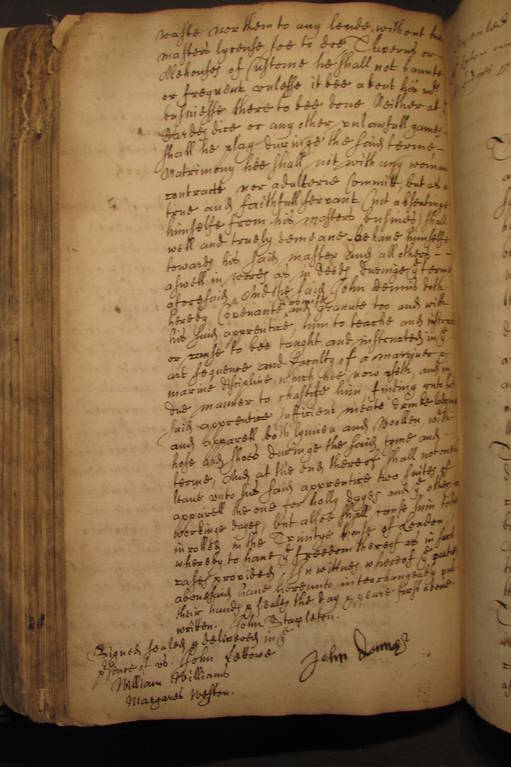 waste nor them to any lende, without his
masters lycense, soe to doe Taverns or
Alehouses of Custome he shall not haunte
or frequent unlesse it bee about his mrs
busniesse there to bee done Neither at
Cardes dice or any other unlawfull games
shall he play duringe the said terme
Matrimony hee shall not with any woman
contract nor adulterie Committ, but as a
true and faithfull servant (not absentinge
himselfe from his masters busines) shall
well and truely demeane behave himselfe
towards his said master and all others
aswell in wordes as in deeds duringe ye terme
aforesaid And the said John dennis doth
hereby Covenante promise and graunte too and with
his said apprentice, him to teache and instruct
or cause to bee taught and instructed in ye
art science and faculty of a marriner &
marine discipline, which hee now useth, and in
due manner to chastise him finding unto his
said apprentice sufficient meate drinke
and apparell both lynnen and woollen, with
hose and shoes duringe the said terme and
terme, And at the end thereof shall
leave unto his said apprentice two suites of
apparell the one for holly dayes and ye other
workinge dayes, but alsoe shall cause him to be
inrolled in the Trinitye house of London,
whereby to have ye freedom thereof as in such
cases provided In wittnes whereof ye parties
abovesaid have hereunto interchangeably put
their hands & seales the day & yeare first above
written. John Stapleton.
Signed sealed & delivered in ye
psence of us. John Fellowe
William Williams
Margaret Weston.
John